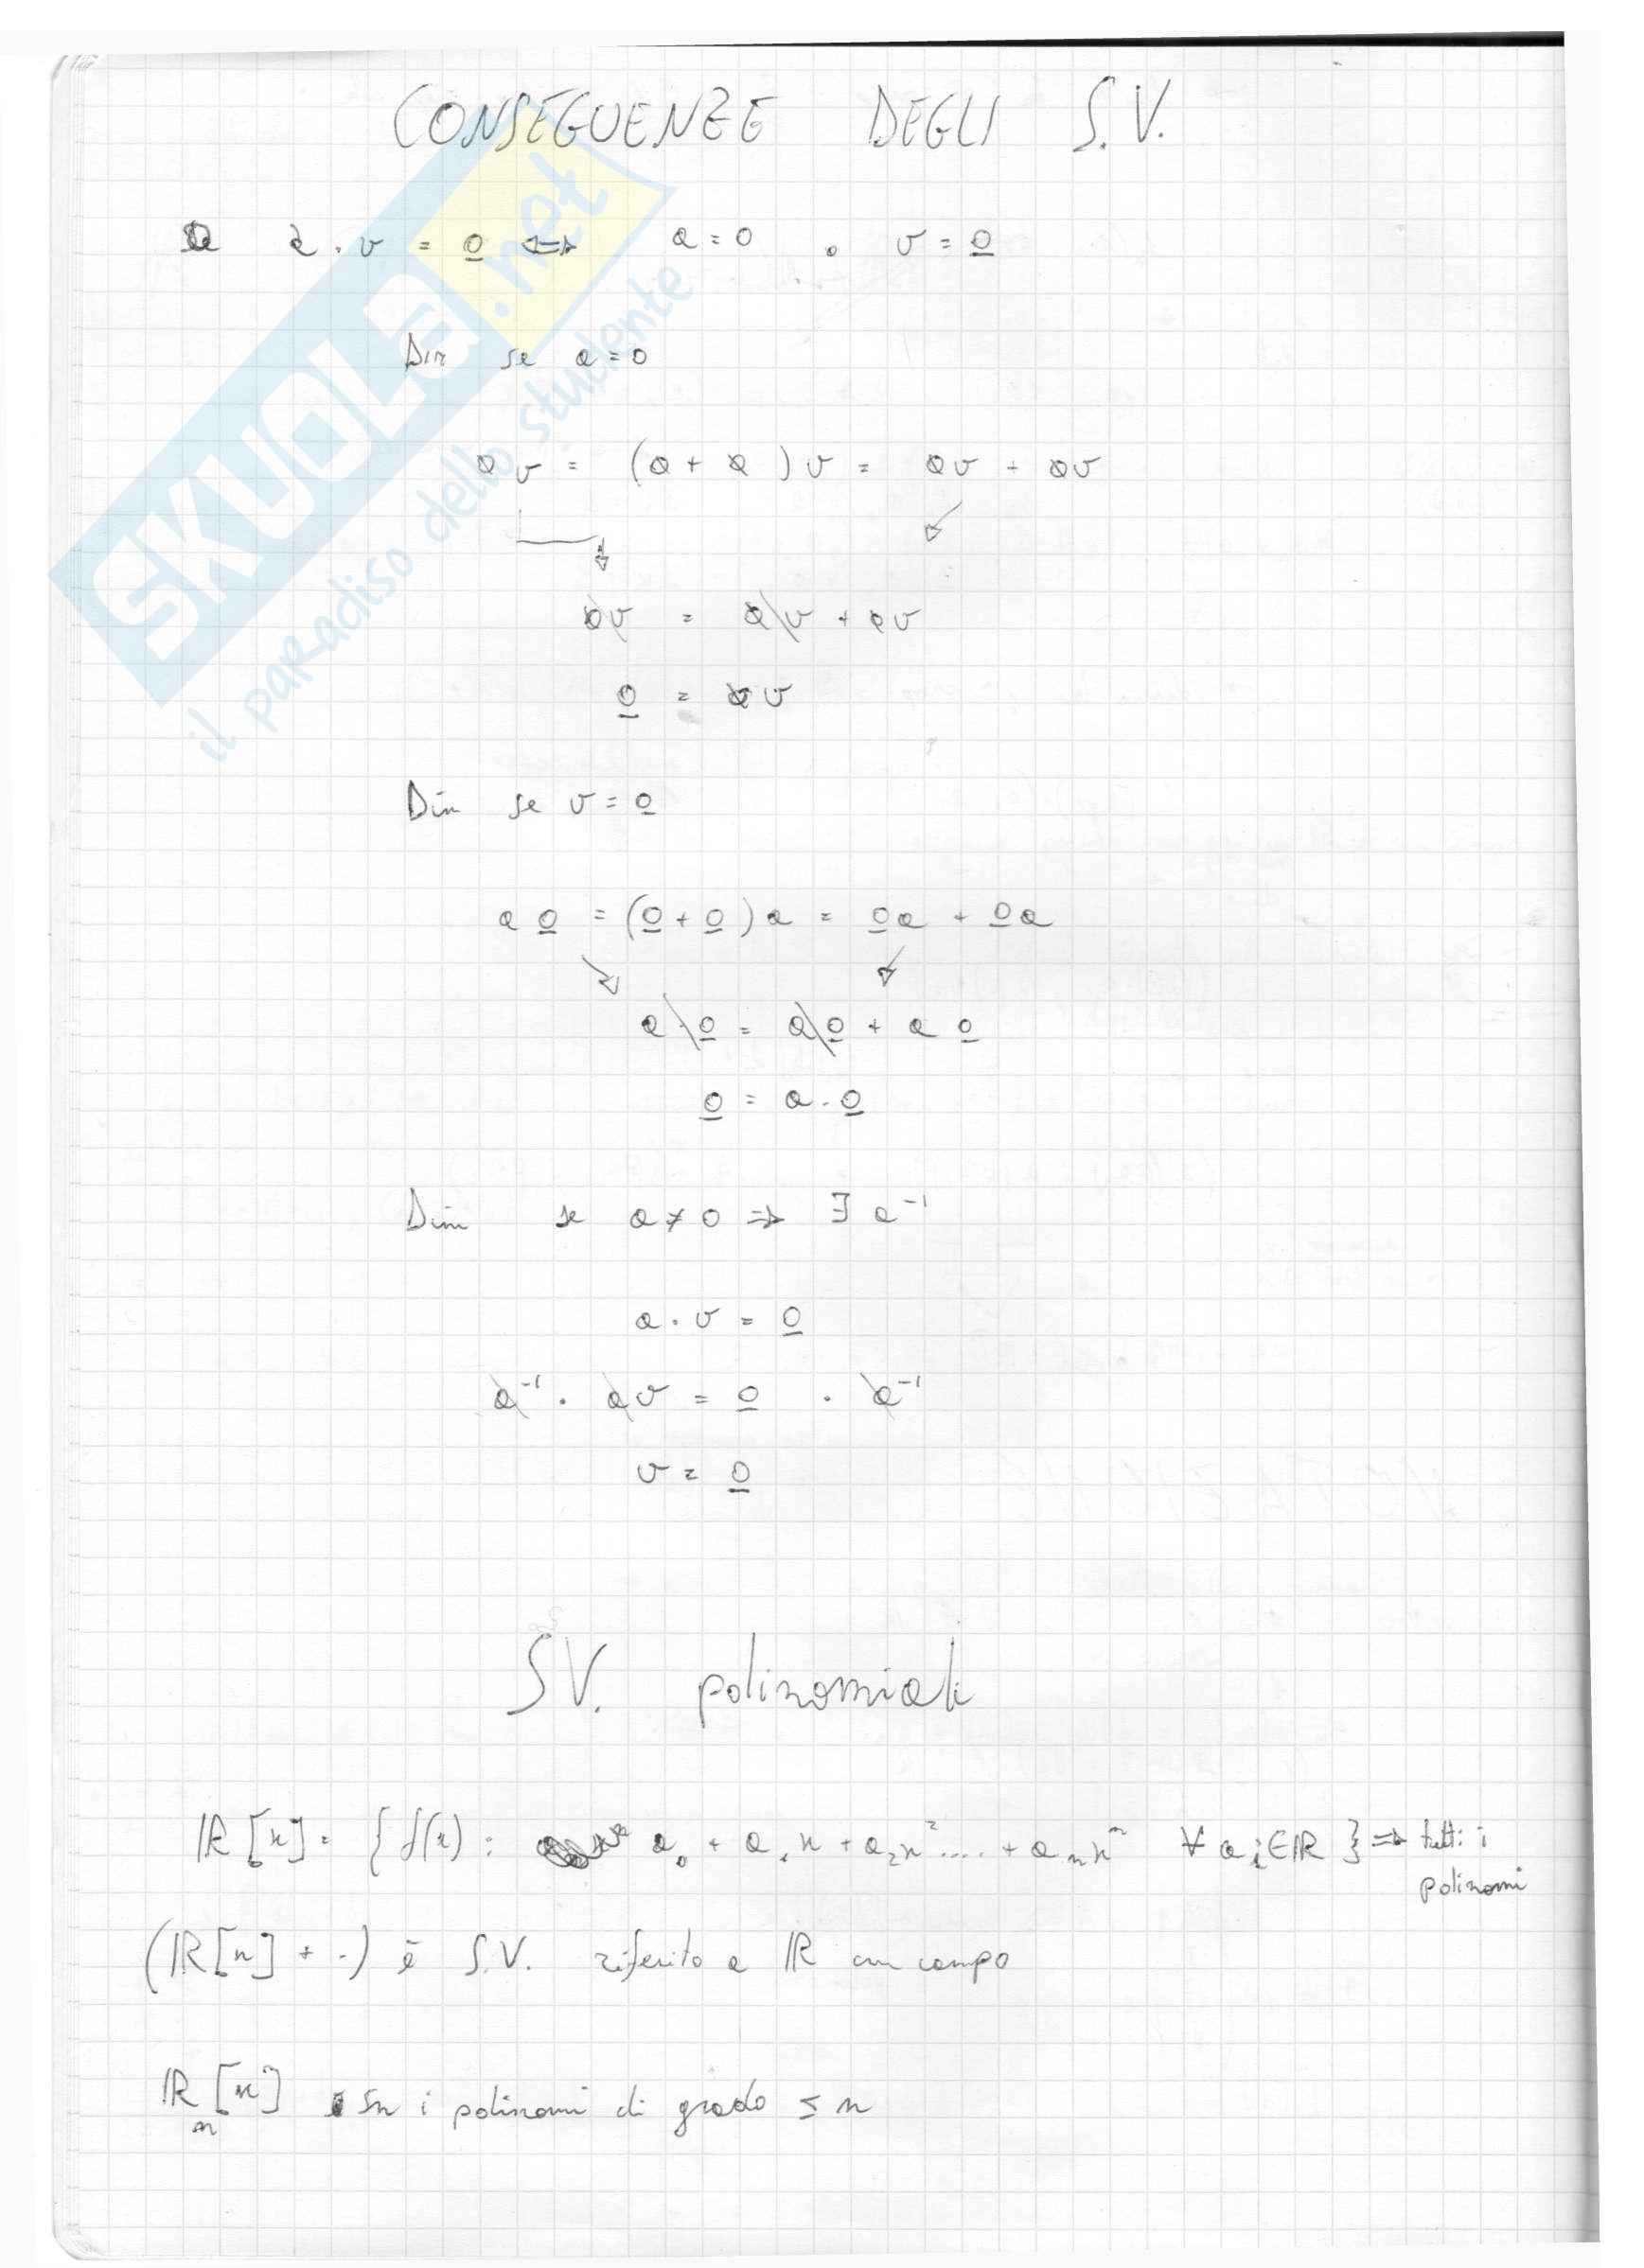 CONSEGUENZE DEGLI S.V.
a · v = 0 <=> a = 0 o v = 0
Dim se a = 0
0v = (0 + 0)v = 0v + 0v
0v = 0v + 0v
0 = 0v
Dim se v = 0
a 0 = (0 + 0)a = 0a + 0a
a · 0 = a 0 + a 0
0 = a · 0
Dim se a ≠ 0 => ∃ a⁻¹
a · v = 0
a⁻¹ · a v = 0 · a⁻¹
v = 0
S.V. polinomiali
ℝ[x] = { f(x) : a₀ + a₁x + a₂x² .... + aₙxⁿ ∀ aᵢ ∈ ℝ } => tutti i
polinomi
(ℝ[x] + ·) è S.V. riferito a ℝ campo
ℝₙ[x] sn i polinomi di grado ≤ n
SKUOLA.net
il paradiso dello studente